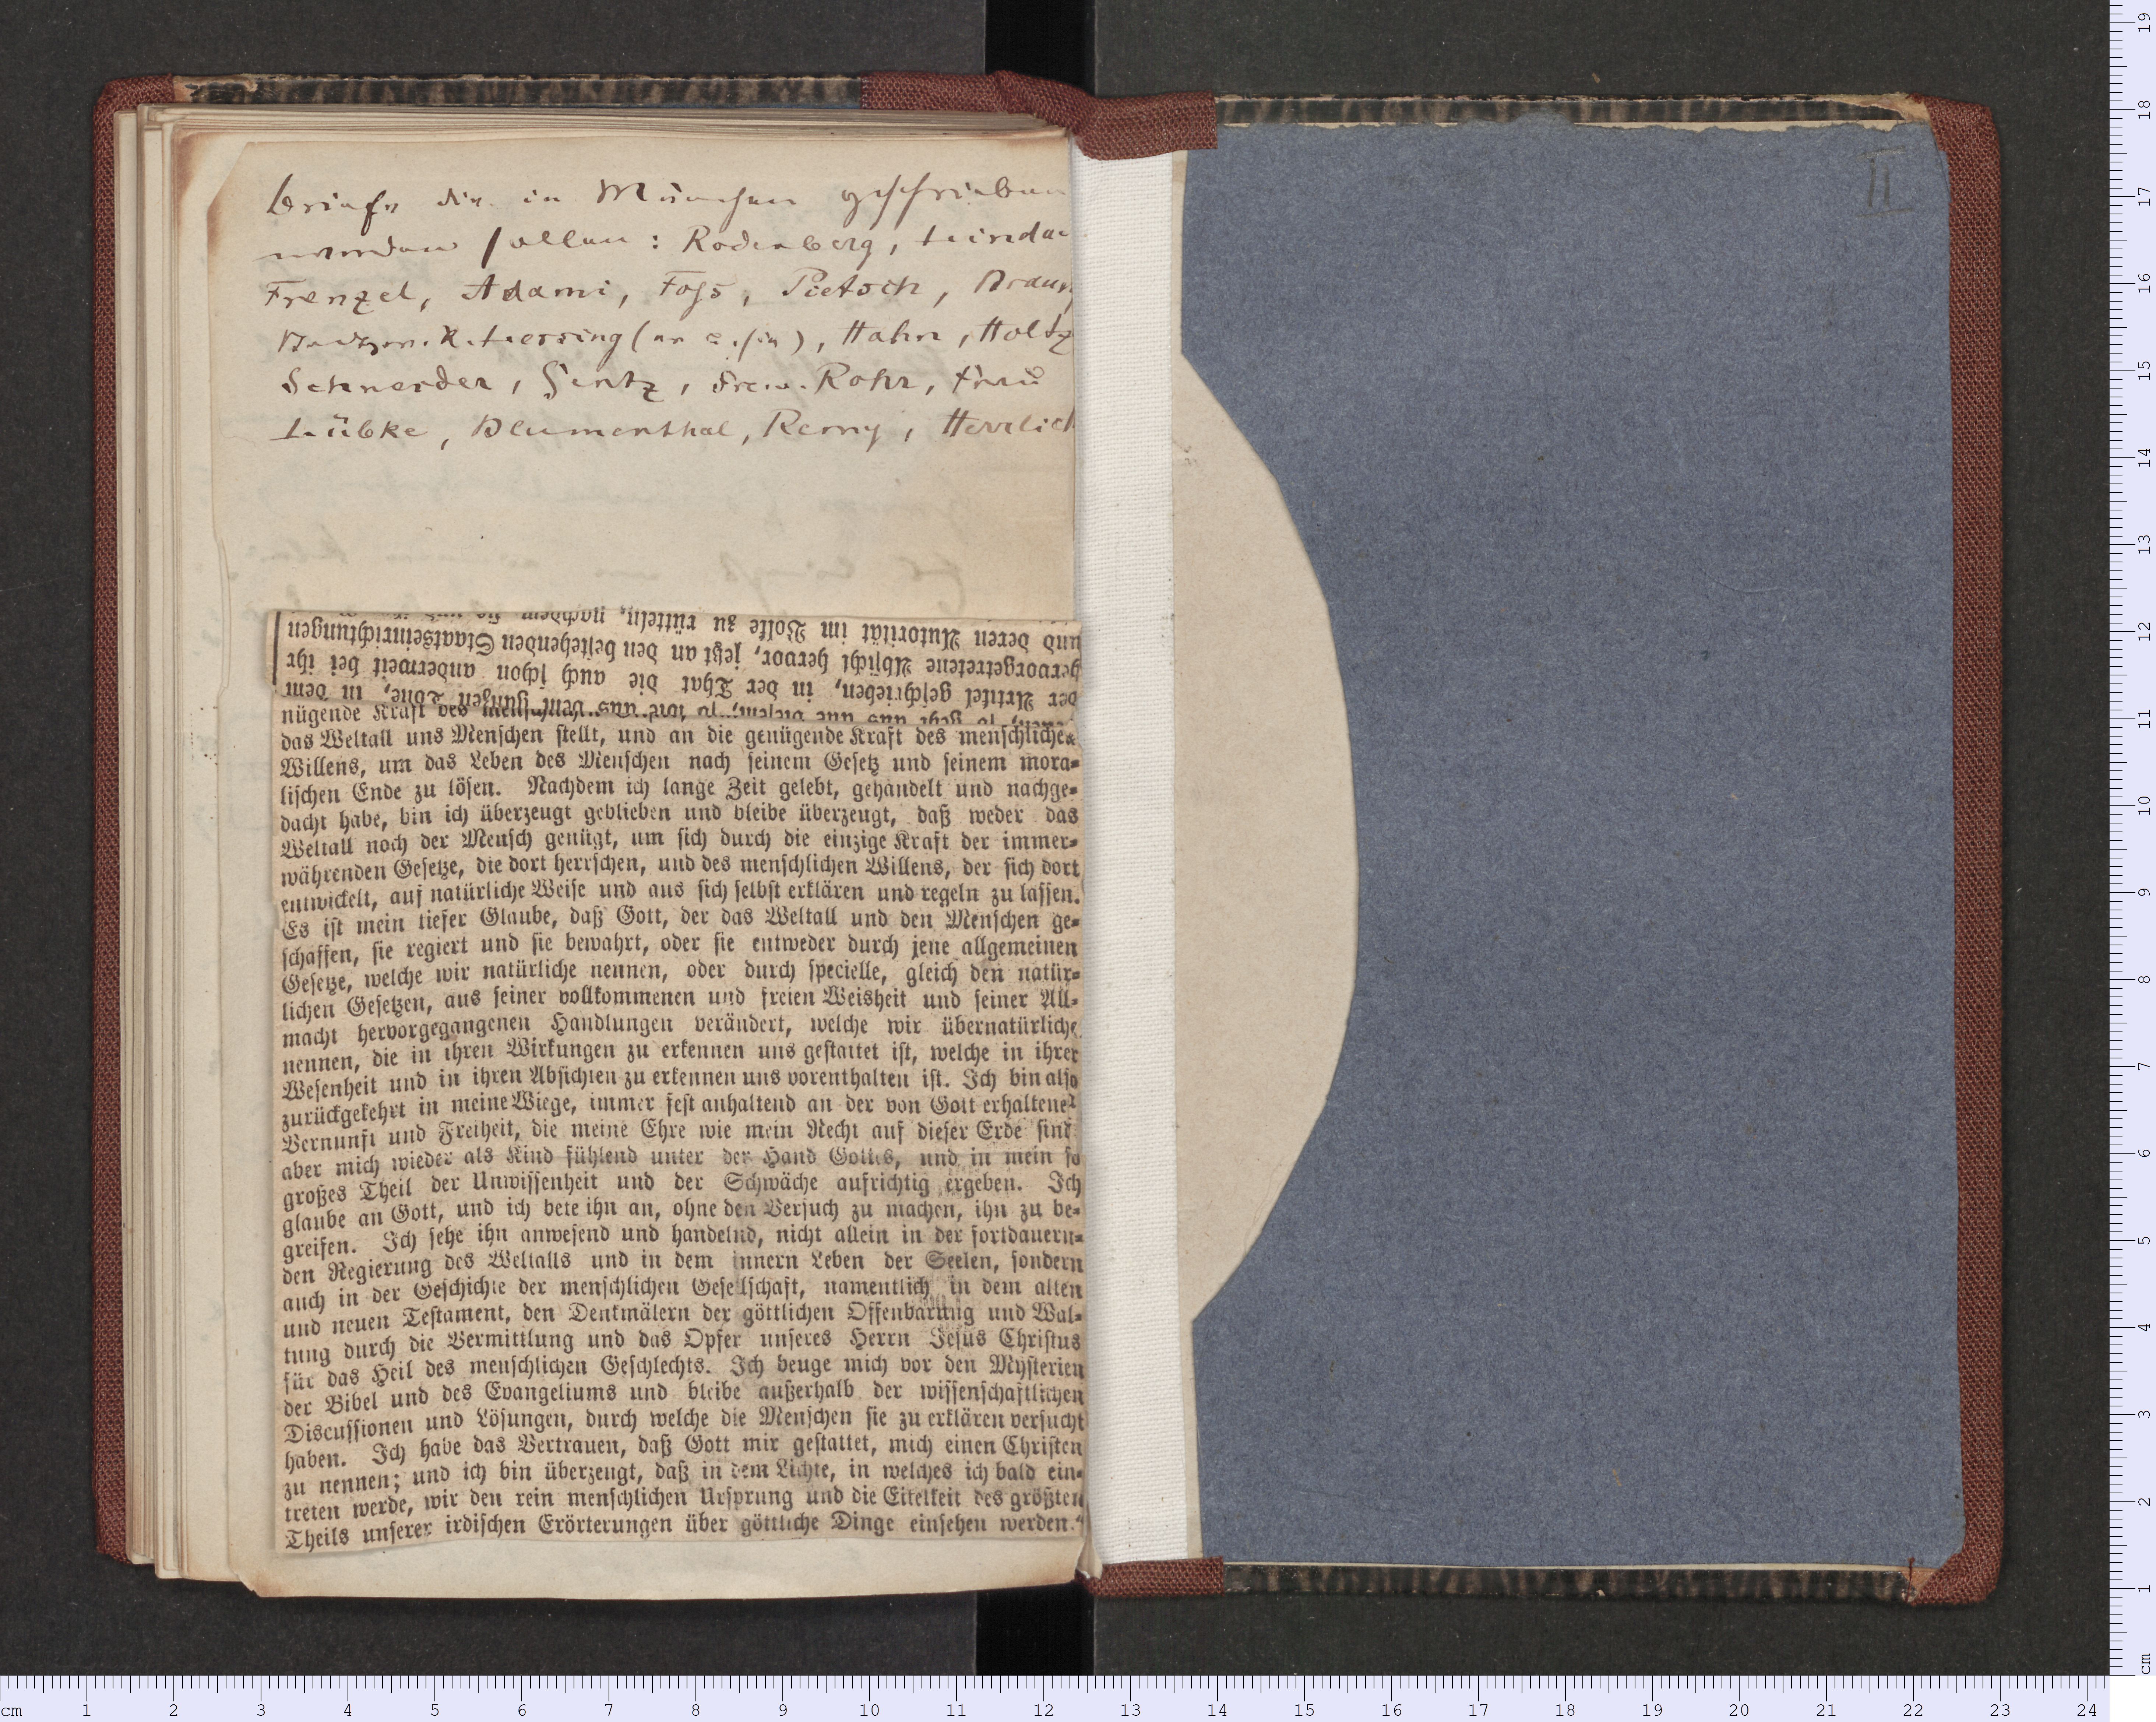 Briefe die in München geschrieben
werden sollen: Rodenberg, Linda
Frenzel, Adami, Foss, Pietsch,
K. Lessing (), Hahn, Holtz
Schneider, Gentz, Rohr, Frau
Lübke, Blumenthal, Remy, Herrlich
II
der Artikel geschrieben, in der That die auch schon anderweit bei ihr
hervorgetretene Absicht hervor, jetzt an den bestehenden Staatseinrichtungen
und deren Autorität im Volke zu rütteln, nachdem
nügende Kraft des
das Weltall uns Menschen stellt, und an die genügende Kraft des menschlichen
Willens, um das Leben des Menschen nach seinem Gesetz und seinem mora-
lischen Ende zu lösen. Nachdem ich lange Zeit gelebt, gehandelt und nachge-
dacht habe, bin ich überzeugt geblieben und bleibe überzeugt, daß weder das
Weltall noch der Mensch genügt, um sich durch die einzige Kraft der immer-
währenden Gesetze, die dort herrschen, und des menschlichen Willens, der sich dort
entwickelt, auf natürliche Weise und aus sich selbst erklären und regeln zu lassen.
Es ist mein tiefer Glaube, daß Gott, der das Weltall und den Menschen ge-
schaffen, sie regiert und sie bewahrt, oder sie entweder durch jene allgemeinen
Gesetze, welche wir natürliche nennen, oder durch specielle, gleich den natür-
lichen Gesetzen, aus seiner vollkommenen und freien Weisheit und seiner All-
macht hervorgegangenen Handlungen verändert, welche wir übernatürliche
nennen, die in ihren Wirkungen zu erkennen uns gestattet ist, welche in ihrer
Wesenheit und in ihren Absichten zu erkennen uns vorenthalten ist. Ich bin also
zurückgekehrt in meine Wiege, immer fest anhaltend an der von Gott erhaltenen
Vernunft und Freiheit, die meine Ehre wie mein Recht auf dieser Erde sind
aber mich wieder als Kind fühlend unter der Hand Gottes, und in mein so
großes Theil der Unwissenheit und der Schwäche aufrichtig ergeben. Ich
glaube an Gott, und ich bete ihn an, ohne den Versuch zu machen, ihn zu be-
greifen. Ich sehe ihn anwesend und handelnd, nicht allein in der fortdauern-
den Regierung des Weltalls und in dem innern Leben der Seelen, sondern
auch in der Geschichte der menschlichen Gesellschaft, namentlich in dem alten
und neuen Testament, den Denkmälern der göttlichen Offenbarung und Wal-
tung durch die Vermittlung und das Opfer unseres Herrn Jesus Christus
für das Heil des menschlichen Geschlechts. Ich beuge mich vor den Mysterien
der Bibel und des Evangeliums und bleibe außerhalb der wissenschaftlichen
Discussionen und Lösungen, durch welche die Menschen sie zu erklären versucht
haben. Ich habe das Vertrauen, daß Gott mir gestattet, mich einen Christen
zu nennen; und ich bin überzeugt, daß in dem Lichte, in welches ich bald ein-
treten werde, wir den rein menschlichen Ursprung und die Eitelkeit des größten
Theils unserer irdischen Erörterungen über göttliche Dinge einsehen werden."